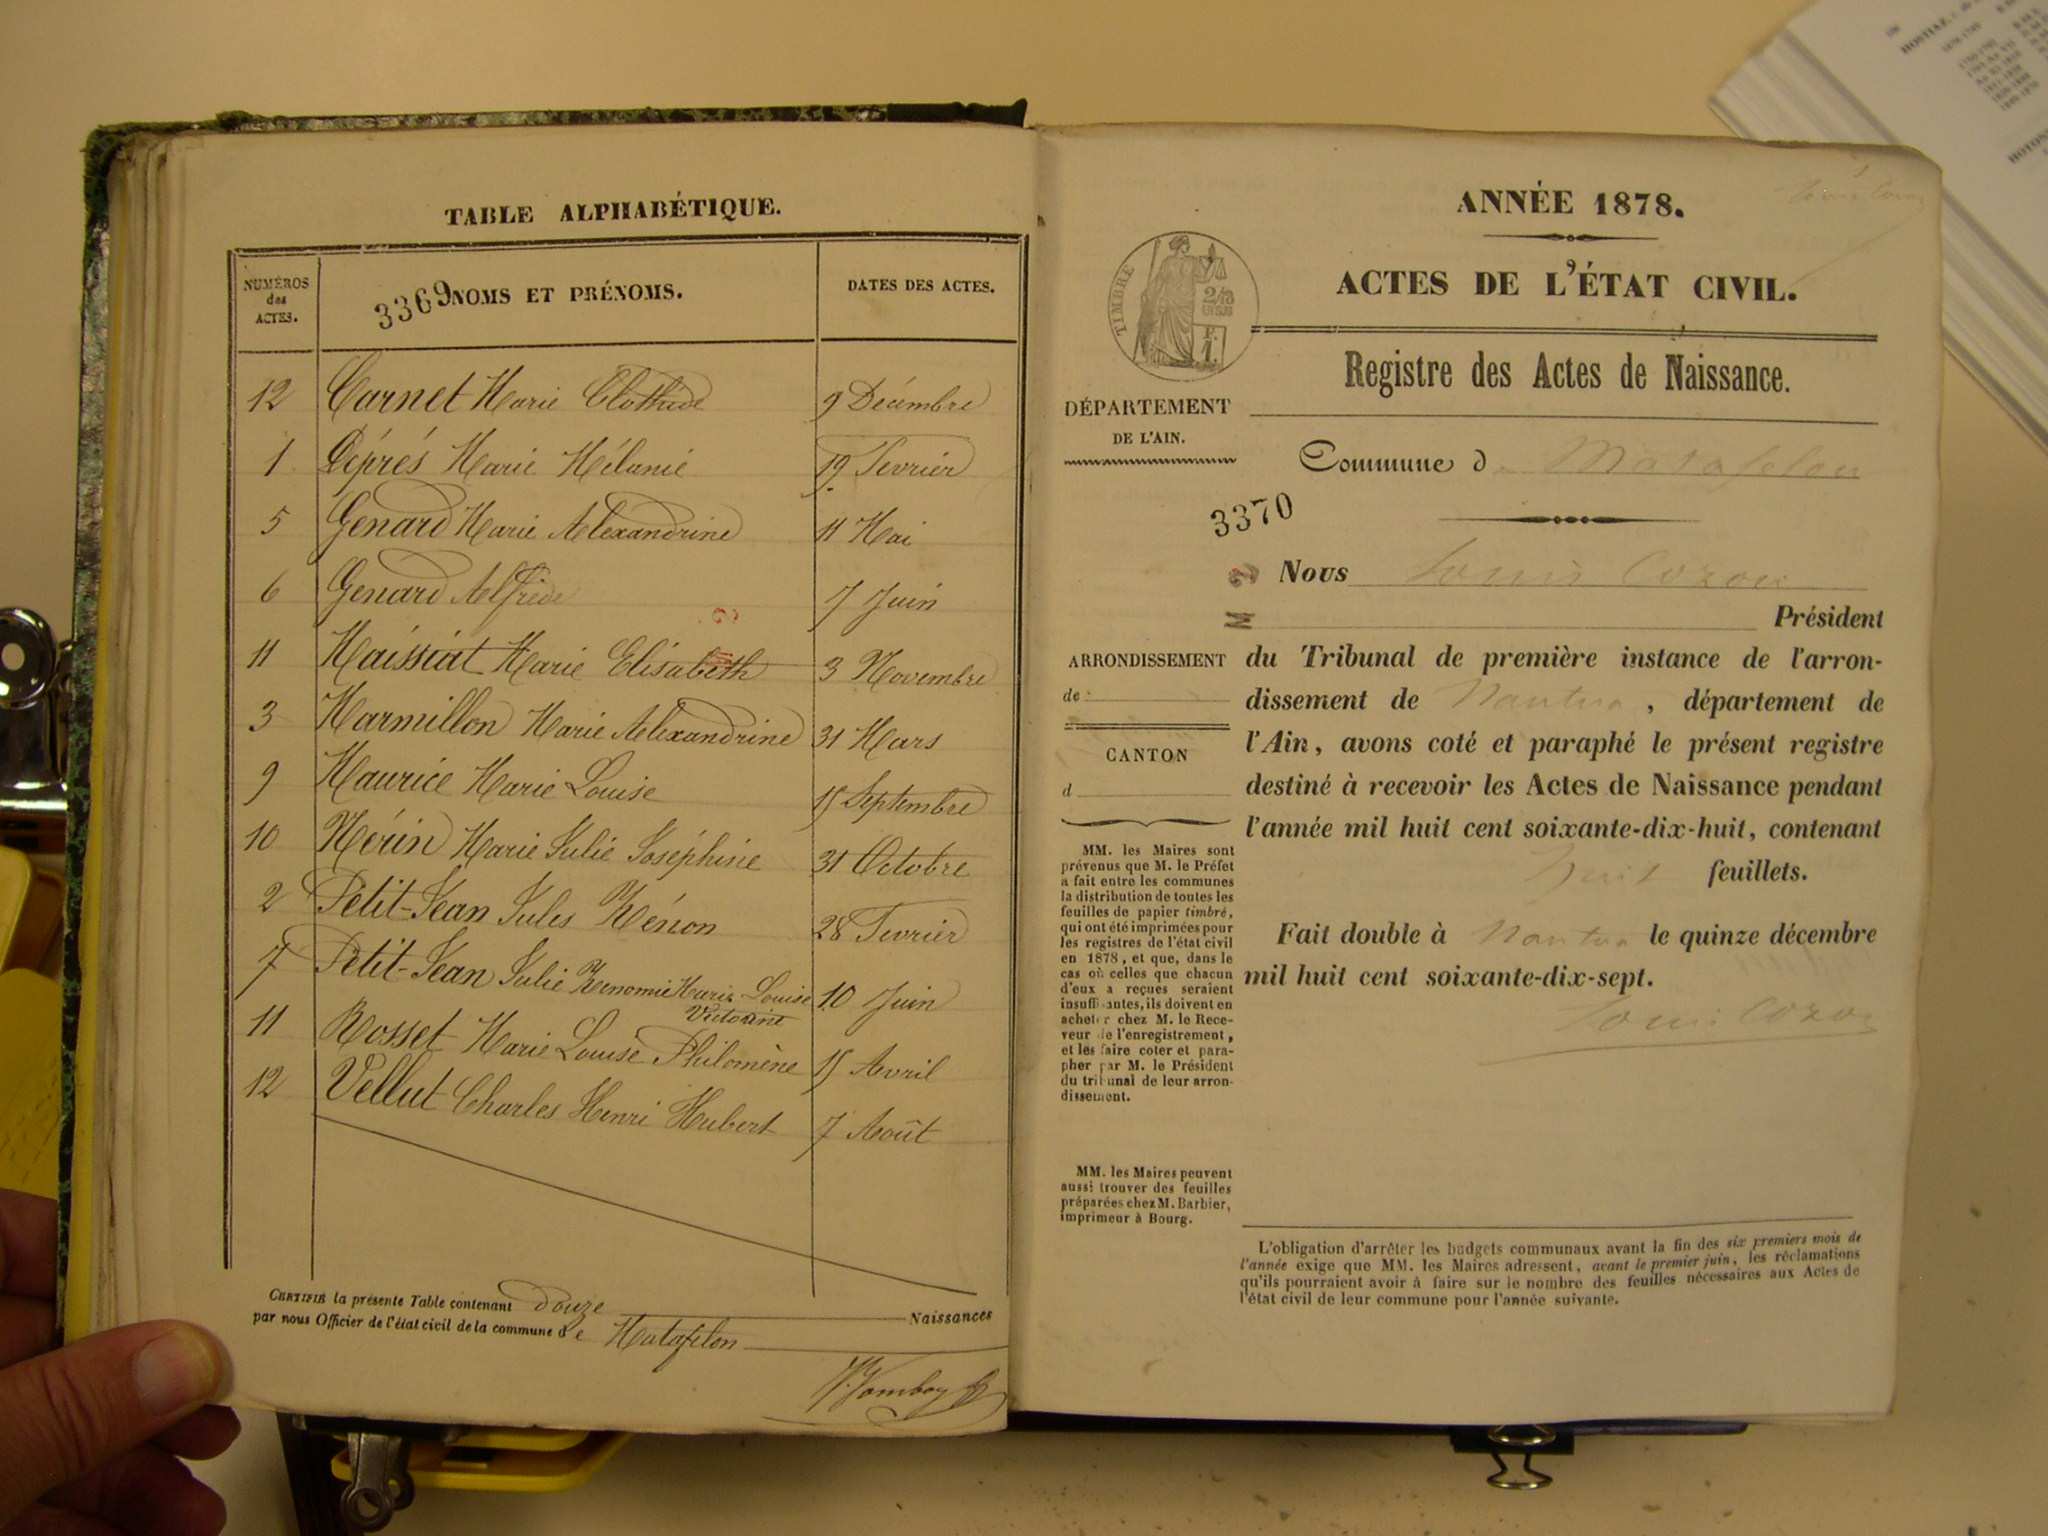 TABLE ALPHABÉTIQUE.
NUMÉROS
des
ACTES.
3369 NOMS ET PRÉNOMS.
DATES DES ACTES.
12 Carnet Marie Clothide 9 Décembre
1 Déprés Marie Mélanie 19 Fevrier
5 Genard Marie Alexandrine 11 Mai
6 Genard Alfréde 7 Juin
11 Maissiat Marie Elisabeth 3 Novembre
3 Marmillon Marie Alexandrine 31 Mars
9 Maurice Marie Louise 15 Septembre
10 Marie Julie Joséphine 31 Octobre
2 Petit-Jean Jules 28 Fevrier
7 Petit-Jean Julie Marie Louise 10 Juin
Victorine
11 Rosset Marie Louise Philomène 15 Avril
12 Vellut Charles Henri Hubert 7 Août
CERTIFIÉ la présente Table contenant douze Naissances
par nous Officier de l'état civil de la commune de Matafelon
ANNÉE 1878.
ACTES DE L'ÉTAT CIVIL.
TIMBRE
Registre des Actes de Naissance.
DÉPARTEMENT
DE L'AIN.
Commune d Matafelon
3370
Nous Louis Cozon
Président
du Tribunal de première instance de l'arron-
dissement de Nantua, département de
l'Ain, avons coté et paraphé le présent registre
destiné à recevoir les Actes de Naissance pendant
l'année mil huit cent soixante-dix-huit, contenant
huit feuillets.
Fait double à Nantua le quinze décembre
mil huit cent soixante-dix-sept.
Louis Cozon
ARRONDISSEMENT
de
CANTON
d
MM. les Maires sont
prévenus que M. le Préfet
a fait entre les communes
la distribution de toutes les
feuilles de papier timbré,
qui ont été imprimées pour
les registres de l'état civil
en 1878, et que, dans le
cas où celles que chacun
d'eux a reçues seraient
insuffisantes, ils doivent en
acheter chez M. le Rece-
veur de l'enregistrement,
et les faire coter et para-
pher par M. le Président
du tribunal de leur arron-
dissement.
MM. les Maires peuvent
aussi trouver des feuilles
préparées chez M. Barbier,
imprimeur à Bourg.
L'obligation d'arrêter les budgets communaux avant la fin des six premiers mois de
l'année exige que MM. les Maires adressent, avant le premier juin, les réclamations
qu'ils pourraient avoir à faire sur le nombre des feuilles nécessaires aux Actes de
l'état civil de leur commune pour l'année suivante.